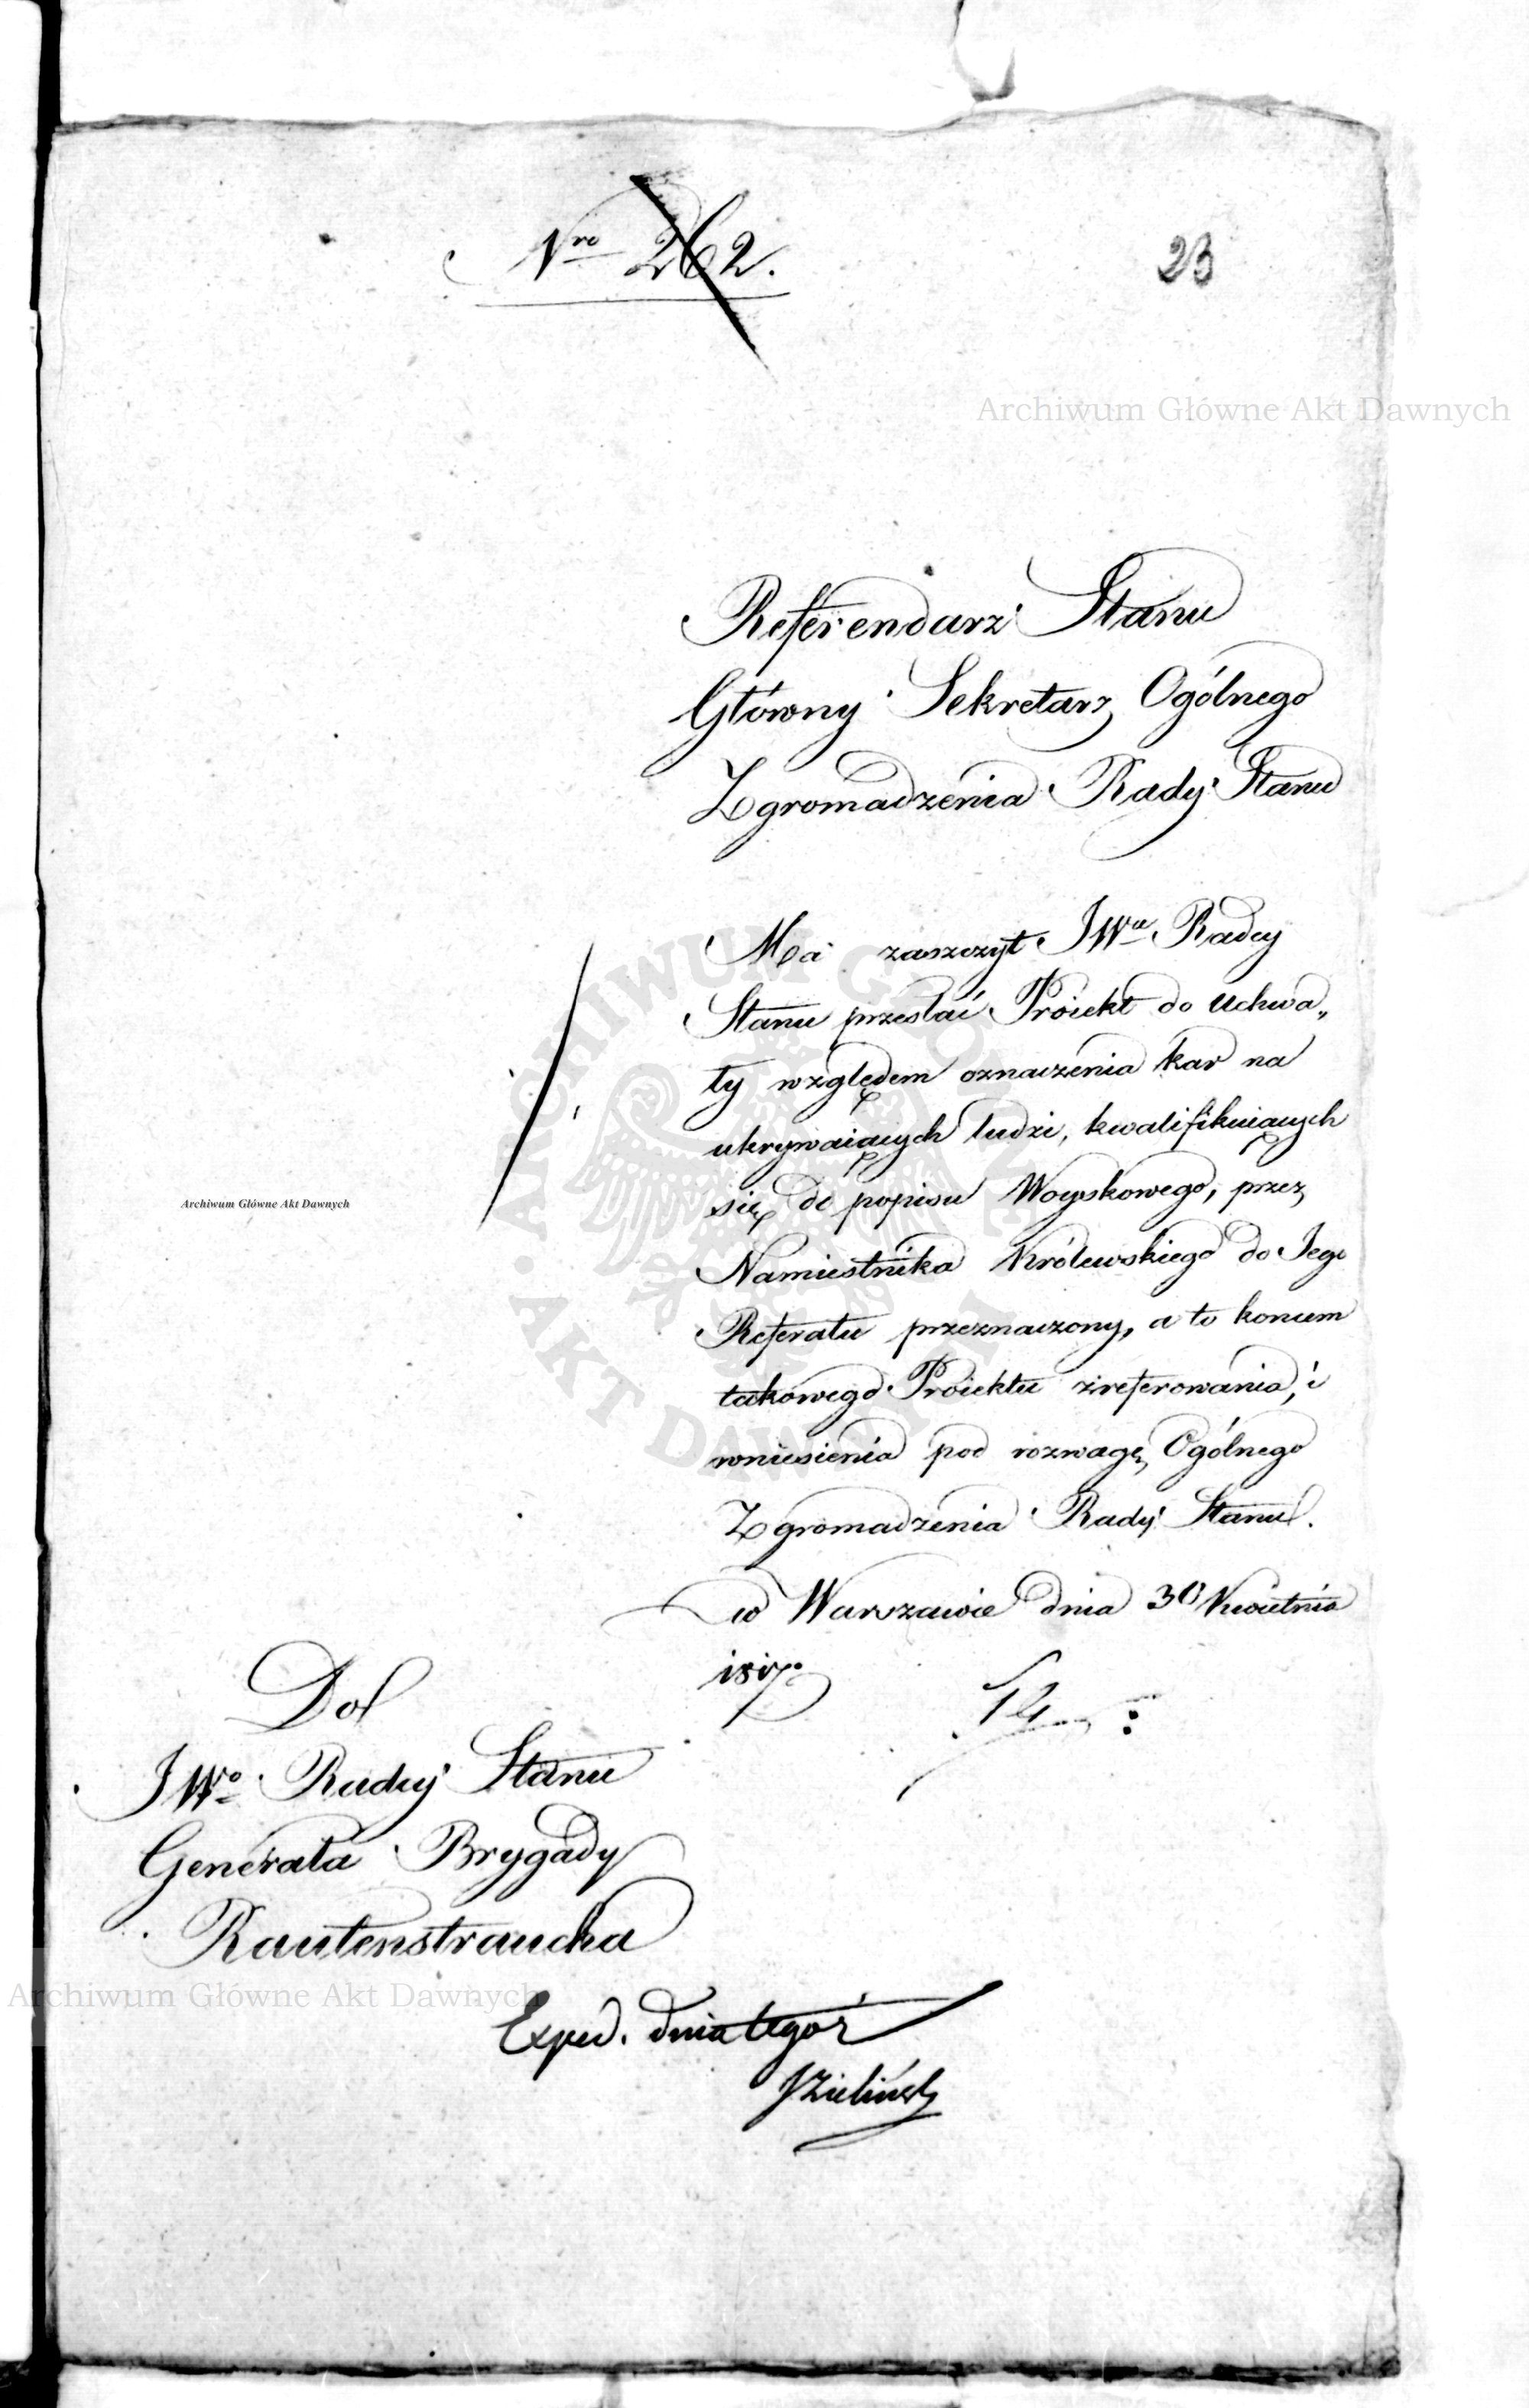 Nro 262.
23
Archiwum Główne Akt Dawnych
Referendarz Stanu
Główny Sekretarz Ogólnego
Zgromadzenia Rady Stanu
Ma zaszczyt JWu Radcy
Stanu przesłać Proiekt do Uchwa„
ły względem oznaczenia kar na
ukrywaiących ludzi, kwalifikuiących
się do popisu Woyskowego, przez
Archiwum Główne Akt Dawnych
Namiestnika Królewskiego do Jego
Referatu przeznaczony, a to koncem
takowego Proiektu zreferowania, i
wniesienia pod rozwagę Ogólnego
Zgromadzenia Rady Stanu.
w Warszawie dnia 30 Kwietnia
1817.
Do
JWo Radcy Stanu
Generała Brygady
Rautenstraucha
Archiwum Główne Akt Dawnych
Exped. dnia tegoż
JZieliński
ARCHIWUM GŁÓWNE AKT DAWNYCH